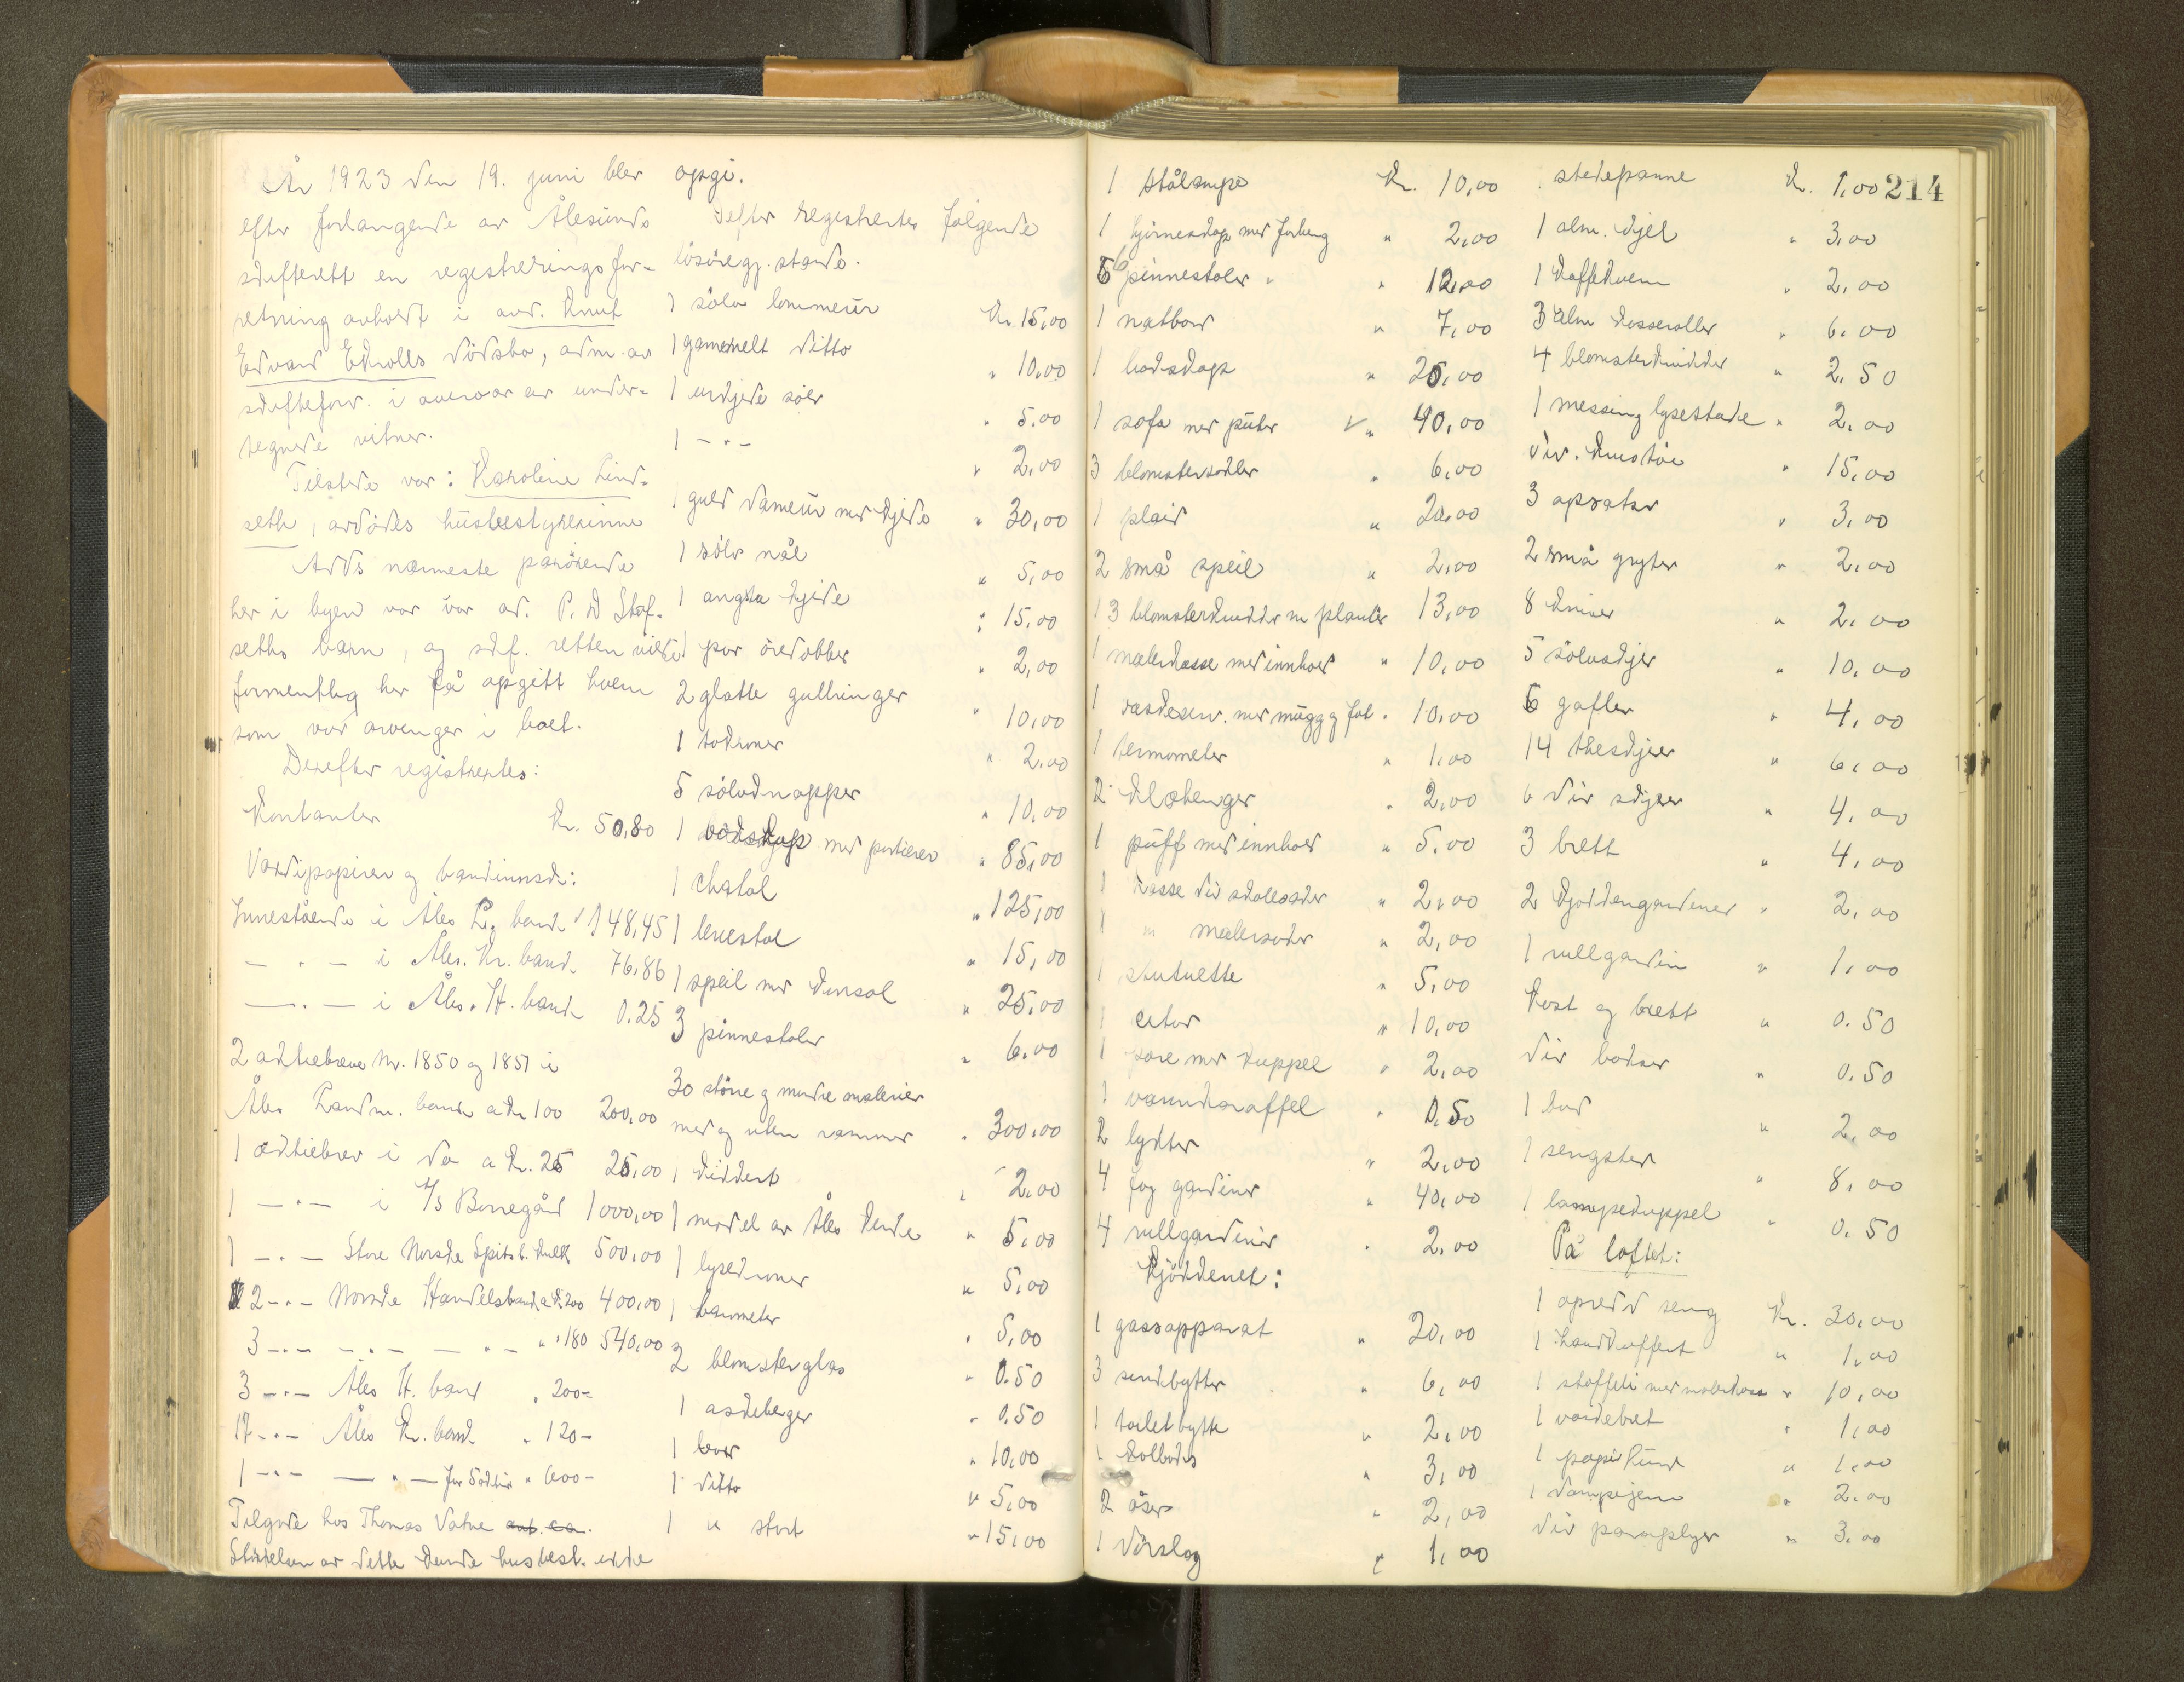 År 1923 den 19. juni blev
efter forlangende av Ålesunds
skifterett en registreringsfor-
retning avholdt i avd. Knut
Edvard Ekrolls dödsbo, adm. av
skifteforv. i overvær av under-
tegnede vitner.
Tilstede var: Karoline Lind-
seth, avdödes husbestyrerinne
Avds nærmeste pårörende
her i byen var av. P. A Staf-
seths barn, og skf. retten vilde
formentlig her få opgitt hvem
som var arvinger i boet.
Derefter registrertes:
Kontanter Kr. 50,80
Værdipapirer og bankinnsk:
Innestående i Åles L. bank 148,45
— " — i Åles. Kr. bank 76,86
— " — i Åles. H. bank 0.25
2 aktiebreve Nr. 1850 og 1851 i
Åles Landm. bank a Kr 100 200,00
1 aktiebrev i do a Kr. 25 25,00
1 — " — i A/S Borregård 1000,00
1 — " — Store Norske Spitsb. Kulk 500,00
2 - " - Norske Handelsbank a Kr 200 400,00
3 - " - — " — — " — " 180 540,00
3 - " - Åles H. bank " 200-
17 - " - Åles Kr. bank " 120-
1 - " - — " — for Södtin " 600-
Tilgode hos Thomas Vatne
Störrelsen av dette kunde husbest. ikke
opgi.
Defter registrertes fölgende
lösöregj.stande.
1 sölv lommeur Kr. 15,00
1 gammelt ditto " 10,00
1 urkjede sölv " 5,00
1 - " - " 2,00
1 guld dameur med kjede " 30,00
1 sölv nål " 5,00
1 angska kjede " 15,00
1 par öredobber " 2,00
2 glatte gullringer " 10,00
1 tokroner " 2,00
5 sölvknapper " 10,00
1 bokskap med portierer " 85,00
1 chatol " 125,00
1 lenestol " 15,00
1 speil med konsol " 25,00
3 pinnestoler " 6,00
30 störe og mindre malerier
med og uten rammer " 300,00
1 kikkert " 2,00
1 model av Åles kirke " 5,00
1 lysekroner " 5,00
1 barometer " 5,00
2 blomsterglas " 0.50
1 askebeger " 0.50
1 bord " 10,00
1 ditto " 5,00
1 " stort " 15,00
1 stålampe Kr. 10,00
1 hjörneskap med forheng " 2,00
6 pinnestoler " " 12,00
1 natbord " 7,00
1 badskap " 25,00
1 sofa med puter " 40,00
3 blomstersokler " 6,00
1 plaid " 20,00
2 små speil " 2,00
13 blomsterkrukker m planter 13,00
1 malerkasse med innhold " 10,00
1 vaskeserv. med mugg og fat " 10,00
1 termometer " 1,00
2 klæhenger " 2,00
1 puff med innhold " 5,00
1 kasse div skolesaker " 2,00
1 " malersaker " 2,00
1 statuette " 5,00
1 citar " 10,00
1 pære med kuppel " 2,00
1 vannkaraffel " 0,50
2 lykter " 2,00
4 fag gardiner " 40,00
4 rullgardiner " 2,00
Kjökkenet:
1 gassapparat " 20,00
3 sinkbytter " 6,00
1 toiletbytte " 2,00
1 kolboks " 3,00
2 öser " 2,00
1 dörslag " 1,00
214
stekepanne Kr. 1,00
1 alm. kjel " 3,00
1 kaffekvern " 2,00
3 alm kasseroller " 6,00
4 blomsterkrukker " 2,50
1 messing lysestake " 2,00
div. knustöi " 15,00
3 opsatser " 3,00
2 små gryter " 2,00
8 kniver " 2,00
5 sölvskjer " 10,00
6 gafler " 4,00
14 theskjeer " 6,00
6 div skjeer " 4,00
3 brett " 4,00
2 kjökkengardiner " 2,00
1 rullgardin " 1,00
Kost og brett " 0.50
div bokser " 0.50
1 bord " 2,00
1 sengsted " 8,00
1 lampekuppel " 0.50
På loftet:
1 opredd seng Kr. 30,00
1 handkoffert " 1,00
1 staffeli med malerkasse " 10,00
1 vaskebret " 1,00
1 papirkurv " 1,00
1 dampjern " 2.00
div paraplyer " 3.00